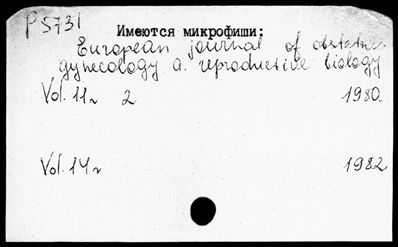 P 5731
Имеются микрофиши:
European journal of obstetric
gynecology a. reproductive biology
Vol. 11 2 1980.
Vol. 14 1982